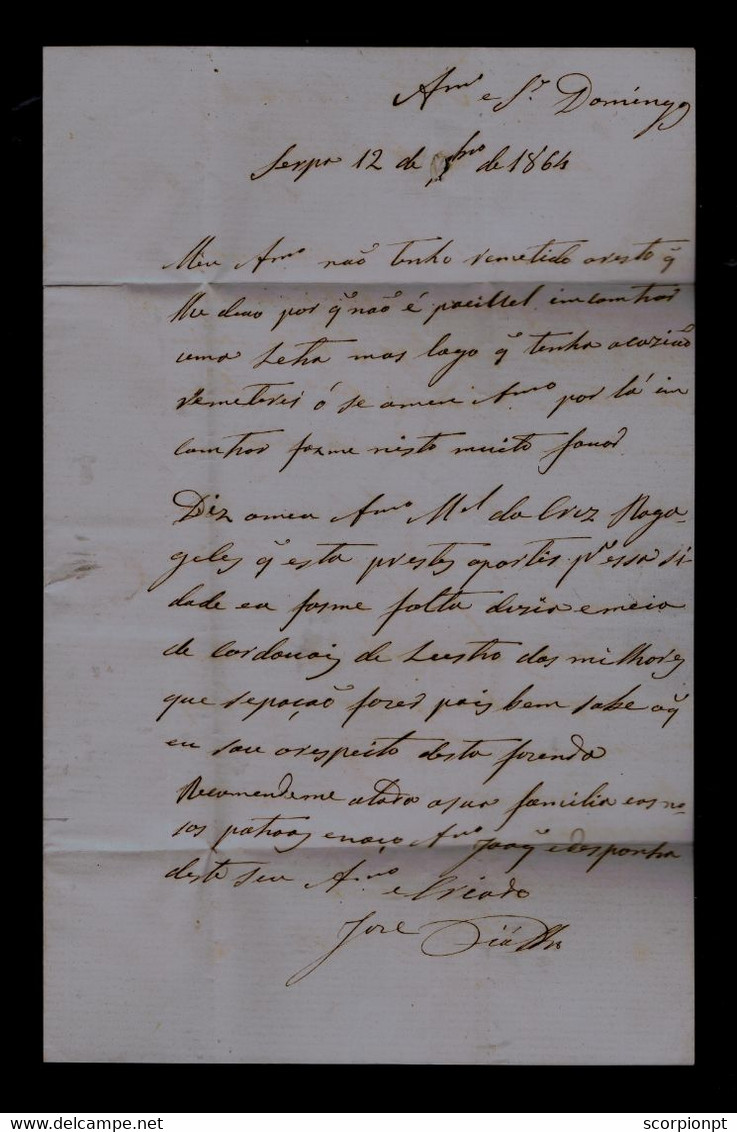 Amº e Sr Domingos
Serpa 12 de de 1864
Meu Amº não tenho remetido oresto q̃
lhe devo por q̃ não é pocivel incontrar
uma Letra mas logo q̃ tenha ocazião
remeterei ó se omeu Amº por lá in
contrar fasme nisto muito favor
Diz omeu Amº Mel da Cruz
q̃ esta prestes apartir pª essa si
dade eu fasme falta duzia e meia
de Cordovais de Lustro dos milhores
que sepoção fazer pois bem sabe oq̃
eu sou orespeito desta fazenda
Recomendeme atoda asua familia eos no
sos patrois enoço Amº Joaqm edesponha
deste seu Amº e Criado
José
www.delcampe.net
scorpionpt